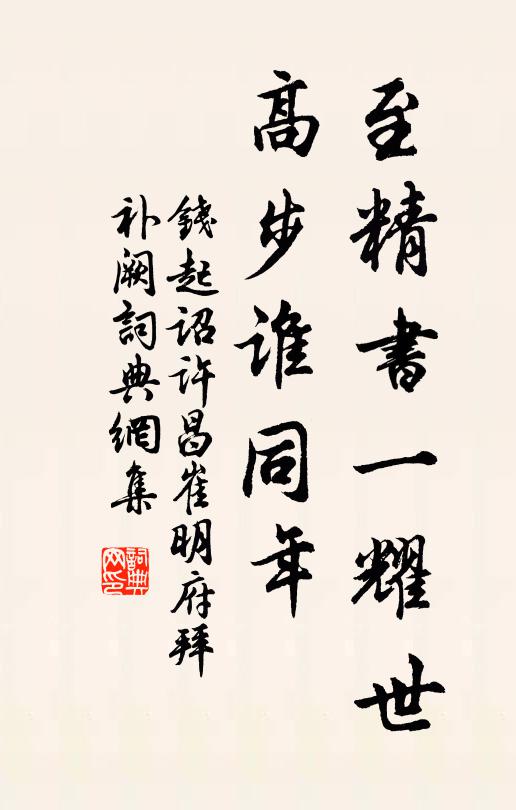 至精書一耀世
高步誰同年
錢起詔許昌崔明府拜
补阙詞典網集
詞典网印